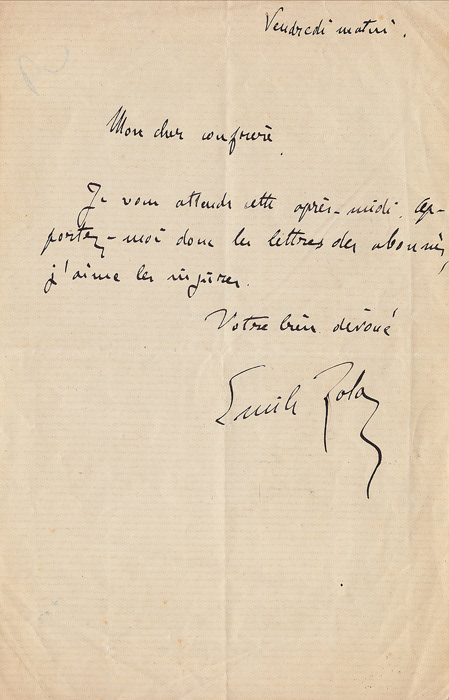 Vendredi matin.
Mon cher confrère
Je vous attends cette après-midi. Ap-
portez-moi donc les lettres des abonnés,
j'aime les injures.
Votre bien dévoué
Emile Zola